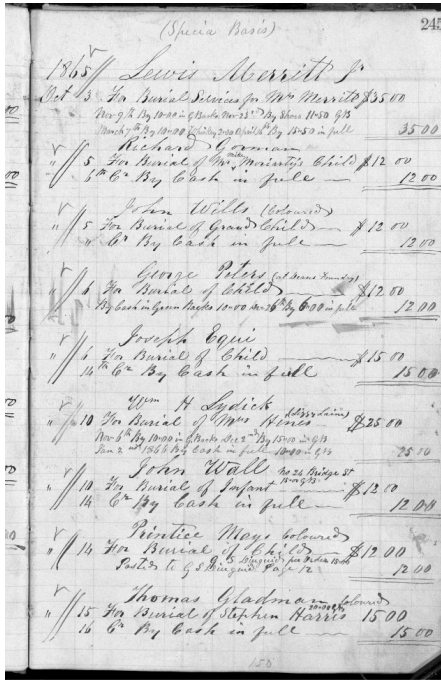 (Specia Basis)
245
1865 Lewis Merritt Jr
Oct 3 For Burial Services for Mrs Merritt $35.00
Nov 9th By 10=00 in G Backs Nov 23rd By Shoes 11=50 GB
March 7th By 10=00 2=00 April By 15=50 in full 35.00
Richard Gorman
" 5 For Burial of Mrs Moriarty's Child $12 00
6th Cr By Cash in full 12.00
John Wills (Coloured)
" 5 For Burial of Grand Child $12 00
" Cr By Cash in full 12.00
George Peters (at Deans Foundry)
" 6 For Burial of Child $12 00
By Cash in Green Backs 10=00 26th By 6=00 in full 12.00
Joseph Equi
" 6 For Burial of Child $15 00
14th Cr By Cash in full 15.00
Wm H Lydick
" 10 For Burial of Mrs Hines $25 00
Nov 6th By 10=00 in G Backs Dec 2nd By 15=00 in GB
Jan 2nd 1866 By Cash in full 10=00 in GB 25.00
John Wall No 26 Bridge St
" 10 For Burial of Infant 15=00 GB $12 00
14 Cr By Cash in full 12.00
Printice Mays Coloured
" 14 For Burial of Child $12 00
Posted to G S Page 12 12.00
Thomas Gladman Coloured
" 15 For Burial of Stephen Harris 15 00
16 Cr By Cash in full 15.00
150